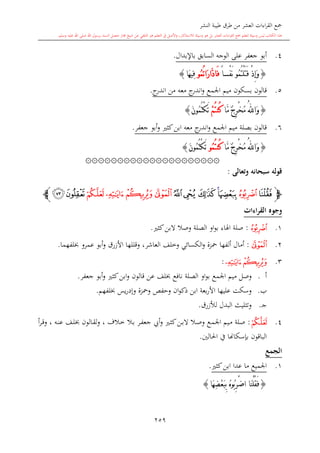 جمع القراءات العشر من طرق طيبة النشر
٤. أبو جعفر على الوجه السابق بالإبدال.
﴿ وَإِذْ قَتَلْتُمُو نَفْساً فَادَّارَاتُمُو فِيهَا ﴾
٥. قالون بسكون ميم الجمع واندرج معه من اندرج.
﴿ وَاللهُ مُخْرِجٌ مَّا كُنتُمْ تَكْتُمُونَ ﴾
٦. قالون بصلة ميم الجمع واندرج معه ابن كثير وأبو جعفر.
﴿ وَاللهُ مُخْرِجٌ مَّا كُنتُمُو تَكْتُمُونَ ﴾
قوله سبحانه وتعالى :
﴿ فَقُلْنَا اضْرِبُوهُ بِبَعْضِهَا كَذَٰلِكَ يُحْيِ اللَّهُ الْمَوْتَىٰ وَيُرِيكُمْ ءَايَٰتِهِۦ لَعَلَّكُمْ تَعْقِلُونَ ٧٣ ﴾
وجوه القراءات
١. اضْرِبُوهُ : صلة الهاء بواو الصلة وصلا لابن كثير.
٢. الْمَوْتَىٰ : أمال ألفها حمزة والكسائي وخلف العاشر، وقللها الأزرق وأبو عمرو بخلفهما.
٣. وَيُرِيكُمْ ءَايَٰتِهِۦ :
أ . وصل ميم الجمع بواو الصلة نافع بخلف عن قالون وابن كثير وأبو جعفر.
ب. وسكت عليها الأربعة ابن ذكوان وحفص وحمزة وإدريس بخلفهم.
جـ. وتثليث البدل للأزرق.
٤. لَعَلَّكُمْ : صلة ميم الجمع وصلا لابن كثير وأبي جعفر بلا خلاف ، ولقالون بخلف عنه ، وقرأ
الباقون بإسكانها في الحالين.
الجمع
١. الجميع ما عدا ابن كثير.
﴿ فَقُلْنَا اضْرِبُوهُ بِبَعْضِهَا ﴾
٢٥٩